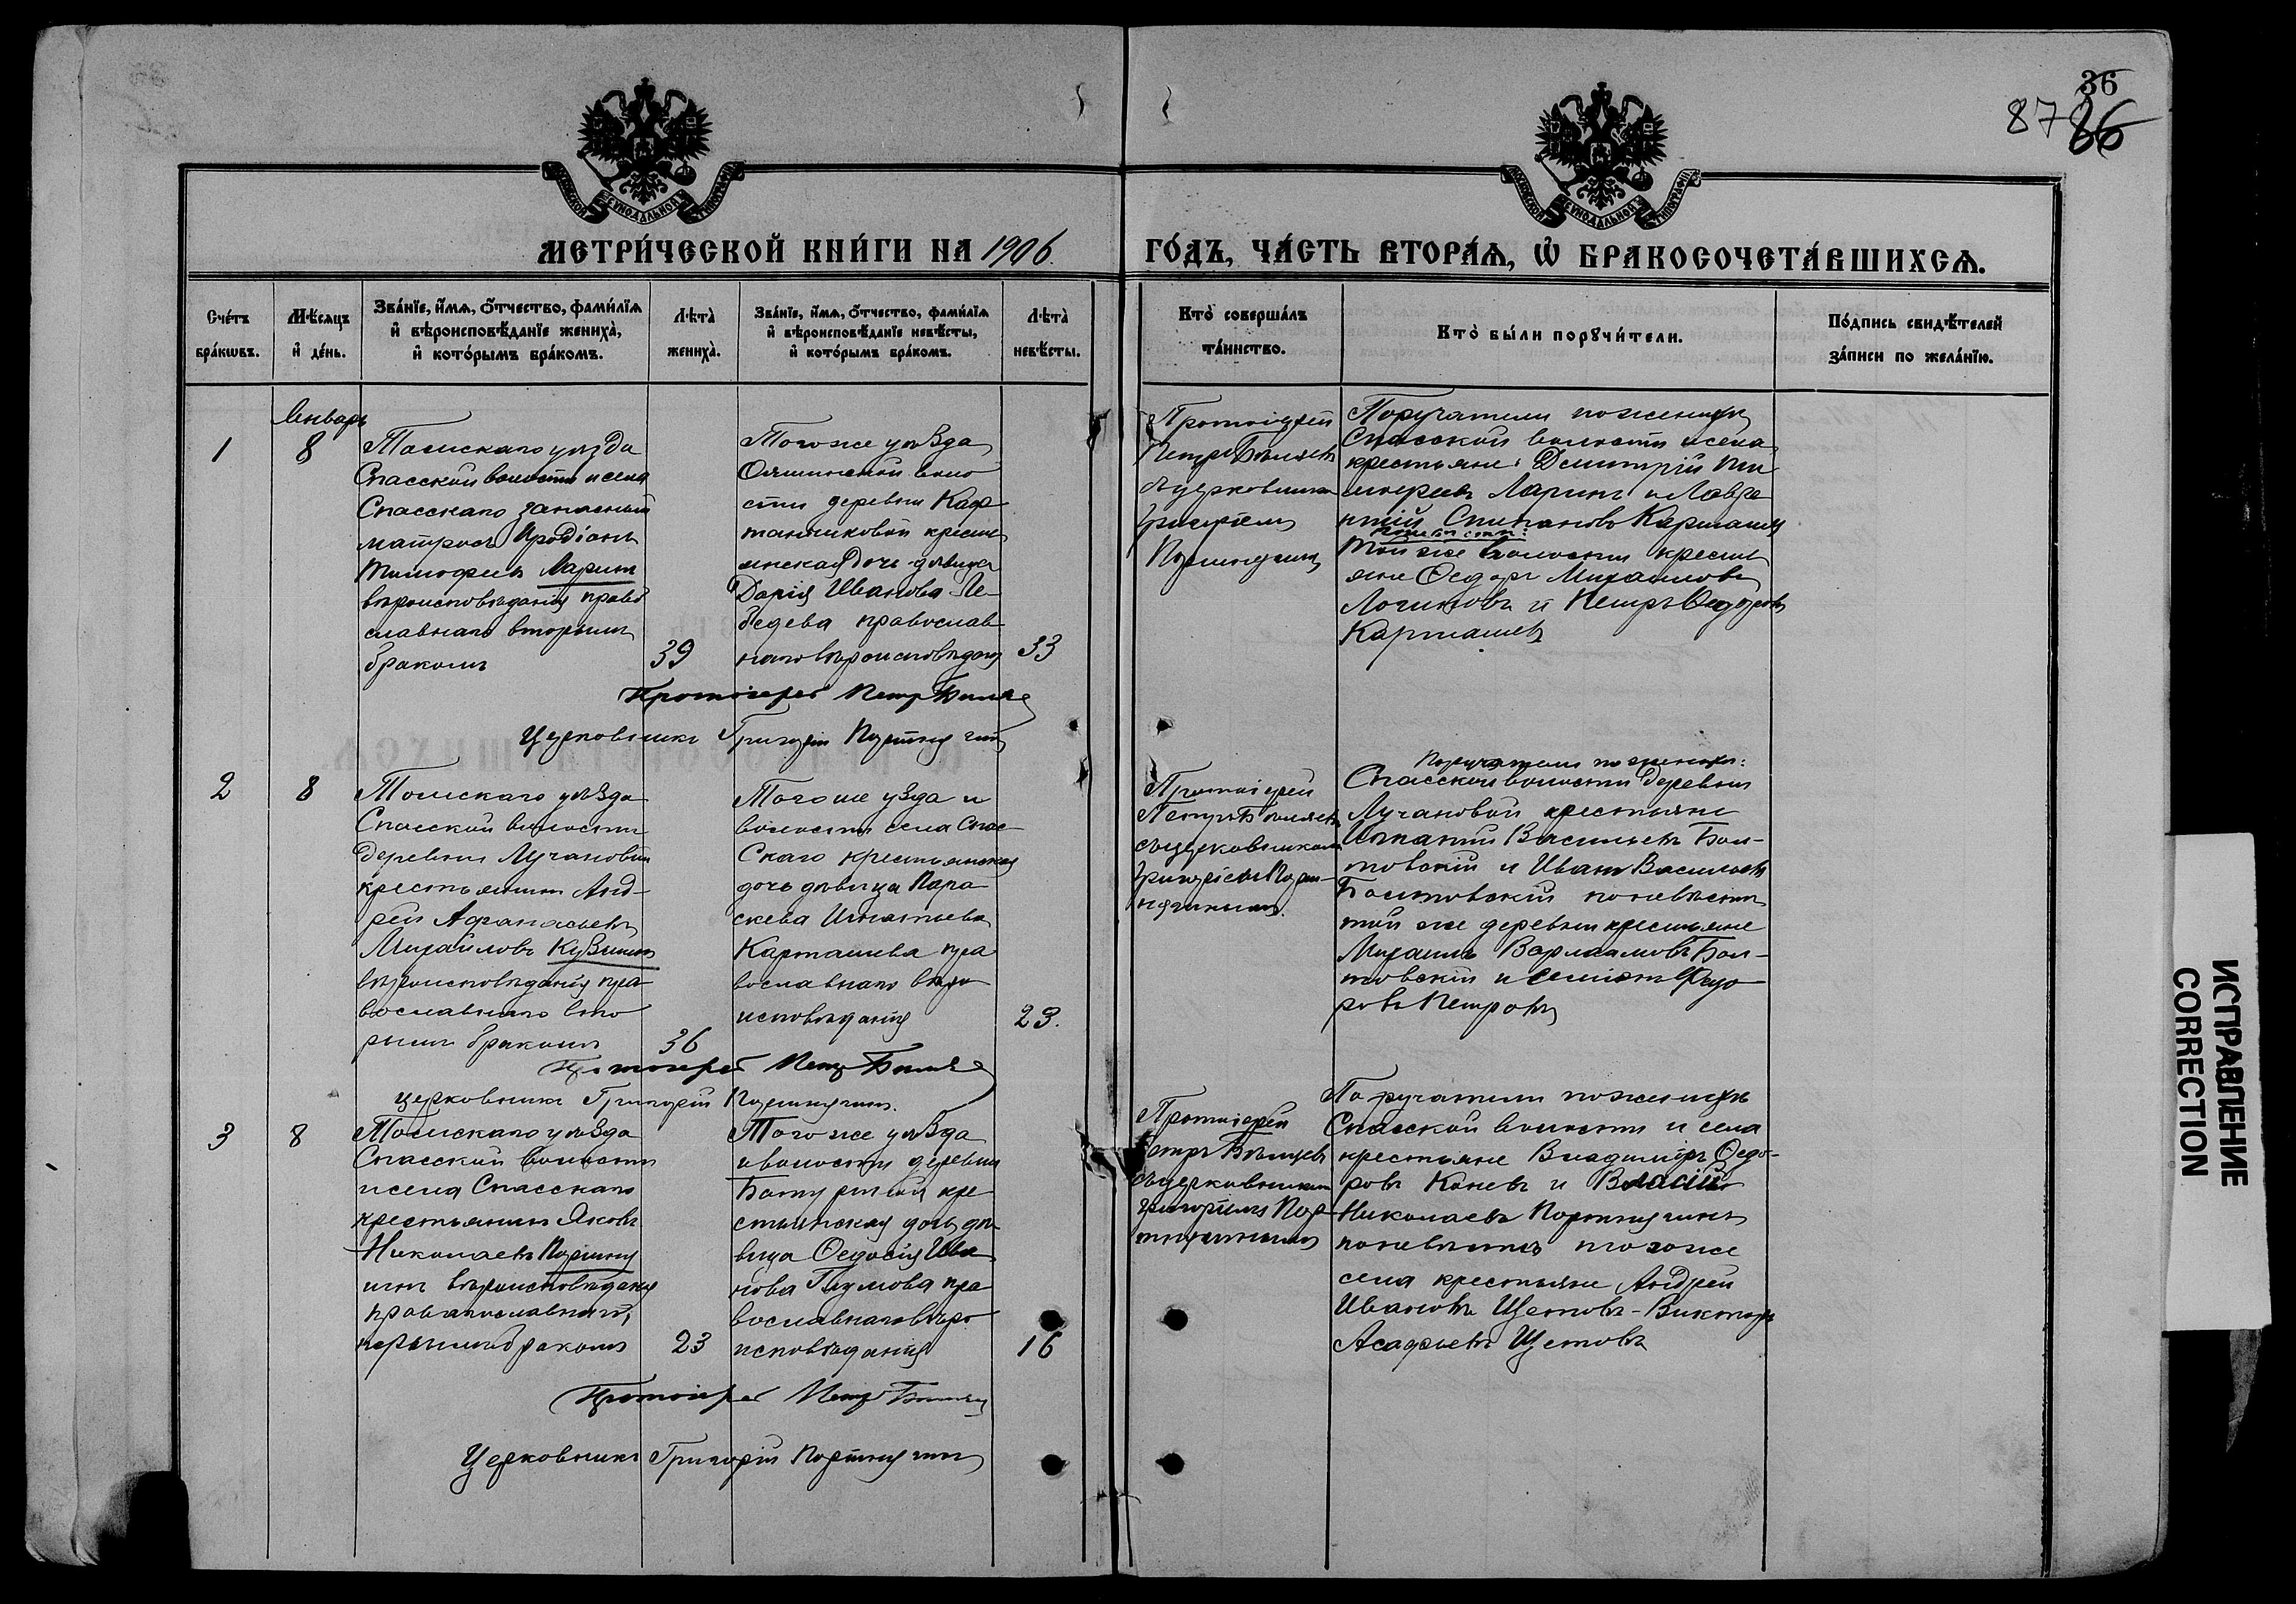 36
87 86
МОСКОВСКОЙ СѴНОДАЛЬНОЙ ТИПОГРАФІИ
МОСКОВСКОЙ СѴНОДАЛЬНОЙ ТИПОГРАФІИ
МЕТРИ́ЧЕСКОЙ КНИ́ГИ НА 1906.
ГО́ДЪ, ЧА́СТЬ ВТОРА́Ѧ, Ѽ БРАКОСОЧЕТА́ВШИХСѦ.
Сче́тъ
бра́кѡвъ.
Мѣ́сяцъ
и҆ де́нь.
Зва́нїе, и҆́мѧ, о҆́тчество, фами́лїѧ
и҆ вѣроисповѣ́данїе жениха̀,
и҆ кото́рымъ бра́комъ.
Лѣта̀
жениха̀.
Зва́нїе, и҆́мѧ, о҆́тчество, фами́лїѧ
и҆ вѣроисповѣ́данїе невѣ́сты,
и҆ кото́рымъ бра́комъ.
Лѣта̀
невѣ́сты.
Кто̀ соверша́лъ
та́инство.
Кто̀ бы́ли порꙋчи́тели.
По́дпись свидѣ́телей
за́писи по жела́нїю.
Январь
1
8
Томскаго уѣзда
Спасской волости и села
Спасскаго запасный
матросъ Иродіонъ
Тимофеевъ Ларинъ
вѣроисповѣданія право
славнаго вторымъ
бракомъ
39
Того же уѣзда
Ояшинской воло
сти деревни Каф
танчиковой кресть
янская дочь девица
Дарія Иванова Ле-
бедева православ
наго вѣроисповѣдан
33
Протоіерей
Петръ Бѣляевъ
съ церковником
Григоріем
Портнягинъ
Поручатели по женихѣ
Спасской волости и села
крестьяне: Дмитрій Ти
мофеевъ Ларинъ и Лавре
нтій Степановъ Карташев
по невѣстѣ:
Той же волости кресть
яне Ѳедоръ Михаиловъ
Логиновъ и Петръ Ѳедоровъ
Карташев
Протоіерей Петръ Бѣляев
Церковникъ Григорій Портнягинъ
2
8
Томскаго уѣзда
Спасской волости
деревни Лучановой
крестьянинъ Анд-
рей Афанасьевъ
Михайловъ Кузминъ
вѣроисповѣданія пра
вославнаго вто
рымъ бракомъ
36
Того же уѣзда и
волости села Спас-
скаго крестьянская
дочь девица Пара
скева Игнатьева
Карташева пра
вославнаго вѣро
исповѣданія
23.
Протоіерей
Петръ Бѣляевъ
съ церковником
Григоріем Порт-
нягинымъ.
Поручатели по женихѣ:
Спасской волости деревни
Лучановой крестьяне
Игнатій Васильевъ Бол-
товскій и Иванъ Васильевъ
Болтовскій по невѣстѣ
той же деревни крестьяне
Михаилъ Варламовъ Бол-
товскій и Ѳедо
ровъ Петровъ
Протоіерей Петръ Бѣляев
церковникъ Григорій Портнягинъ.
3
8
Томскаго уѣзда
Спасской волости
и села Спасскаго
крестьянинъ Яковъ
Николаевъ Портняг
инъ вѣроисповѣданія
православнаго,
первымъ бракомъ
23
Того же уѣзда
и волости деревни
Батуриной кре
стьянская дочь дѣ-
вица Ѳедосія Ива
нова Глумова пра
вославнаго вѣро
исповѣданія
16
Протоіерей
Петръ Бѣляевъ
съ церковником
Григоріем Порт
нягинымъ
Поручатели по женихѣ
Спасской волости и села
крестьяне Владиміръ Ѳедо-
ровъ Коневъ и Власій
Николаевъ Портнягинъ
по невѣстѣ того же
села крестьяне Андрей
Ивановъ Щетовъ - Викторъ
Асафьевъ Щетовъ
Протоіерей Петръ Бѣляев
Церковникъ Григорій Портнягинъ
ИСПРАВЛЕНИЕ
CORRECTION